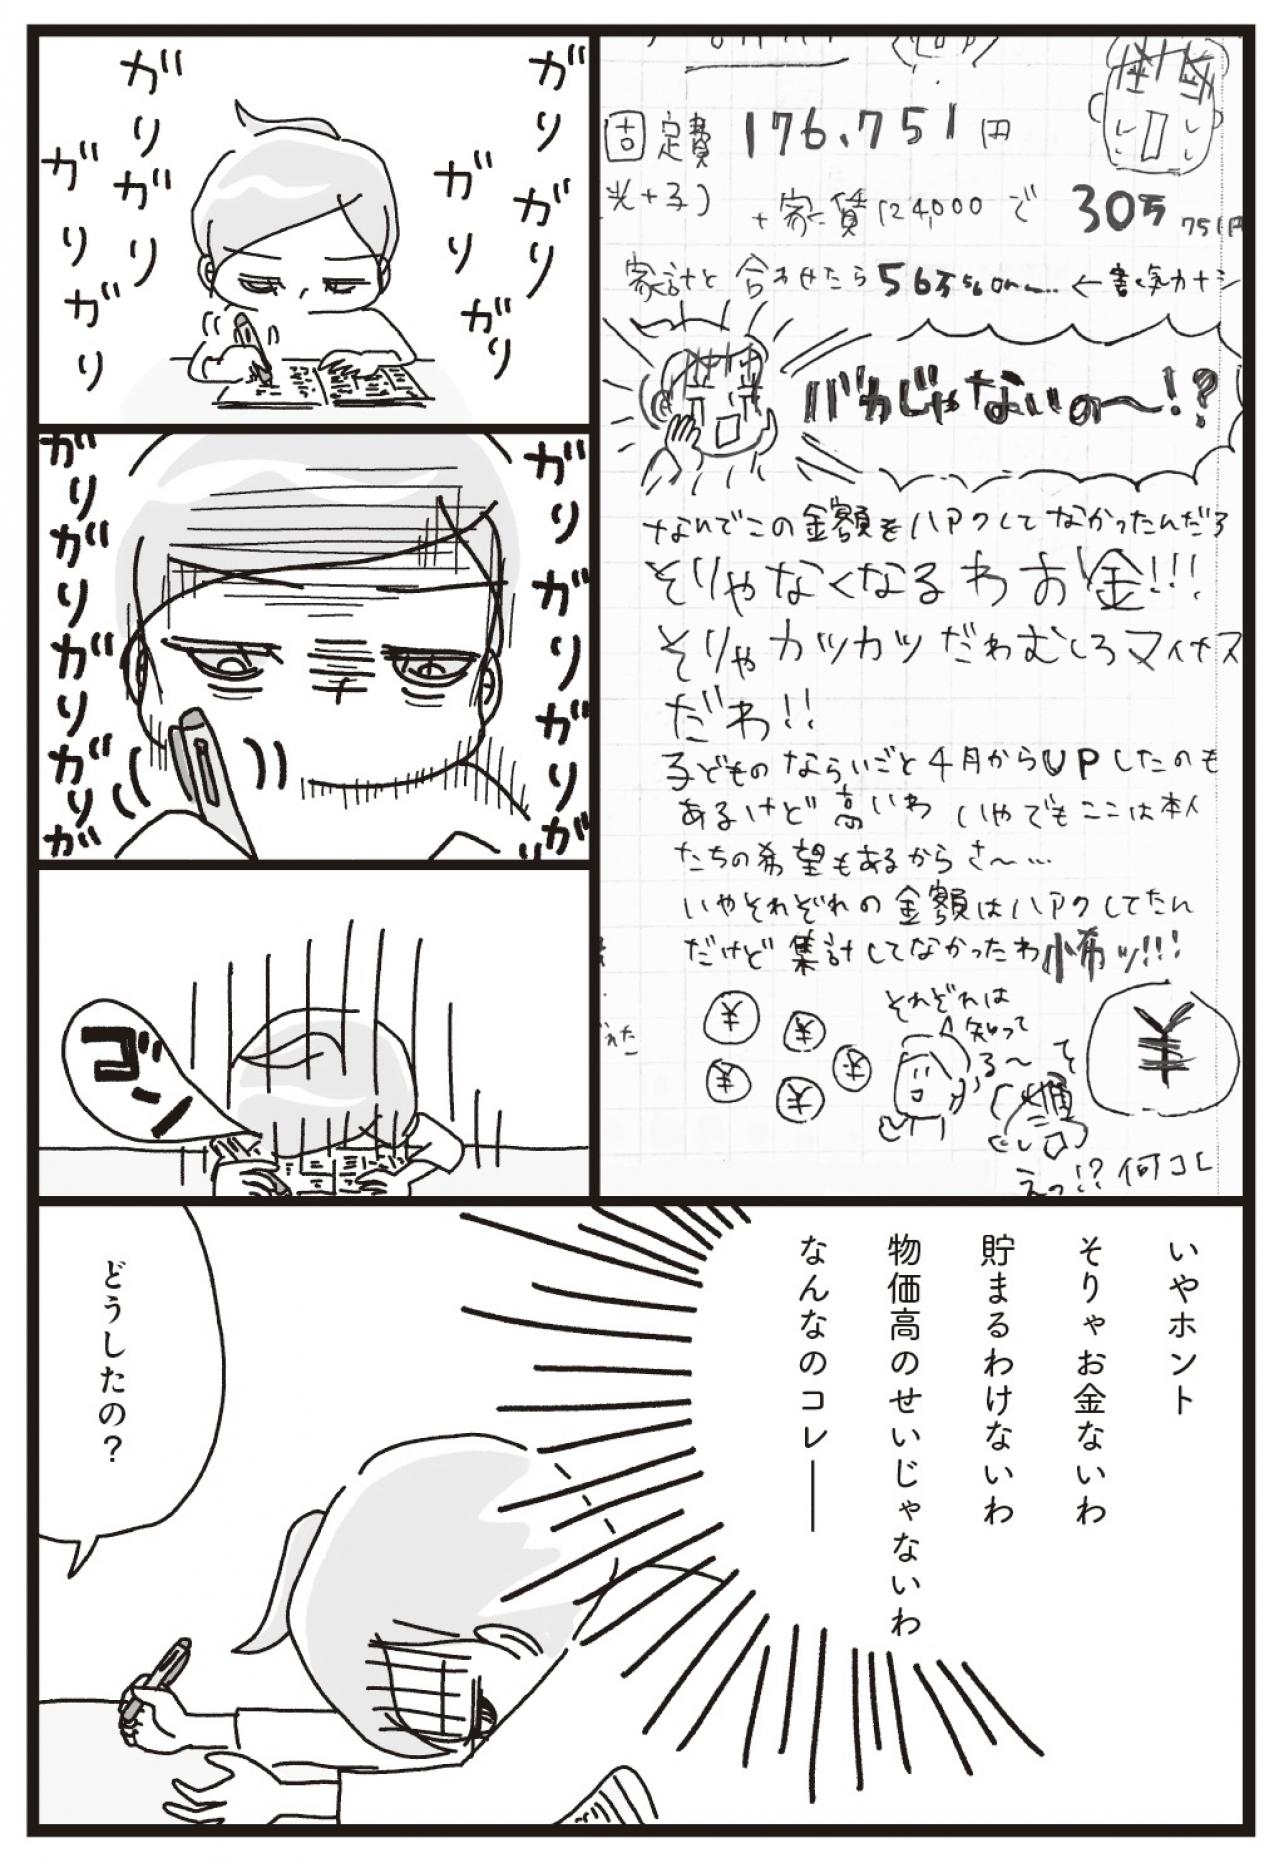 固定費 176,751円
光+子)
+家賃124,000で 30万751円
家計と合わせたら56万560円〜… ←書く気カナシ
バカじゃないの〜!?
なんでこの金額をハアクしてなかったんだろ
そりゃなくなるわお金!!!
そりゃカツカツだわむしろマイナス
だわ!!
子どものならいごと4月からUPしたのも
あるけど高いわ いやでもここは本人
たちの希望もあるからさ〜…
いやそれぞれの金額はハアクしてたん
だけど集計してなかったわ怖ッ!!!
¥
¥
¥
¥
¥
それぞれは
知って
る〜
そ
¥
えっ!?何コレ
ガリ
ガリ
ガリ
ガリ
ガリ
ガリ
ガリ
ガリ
ガリ
ガリ
ガリ
ガ
ガリ
ガリ
ガリ
ガリ
ガ
ゴン
いやホント
そりゃお金ないわ
貯まるわけないわ
物価高のせいじゃないわ
なんなのコレ――
どうしたの?